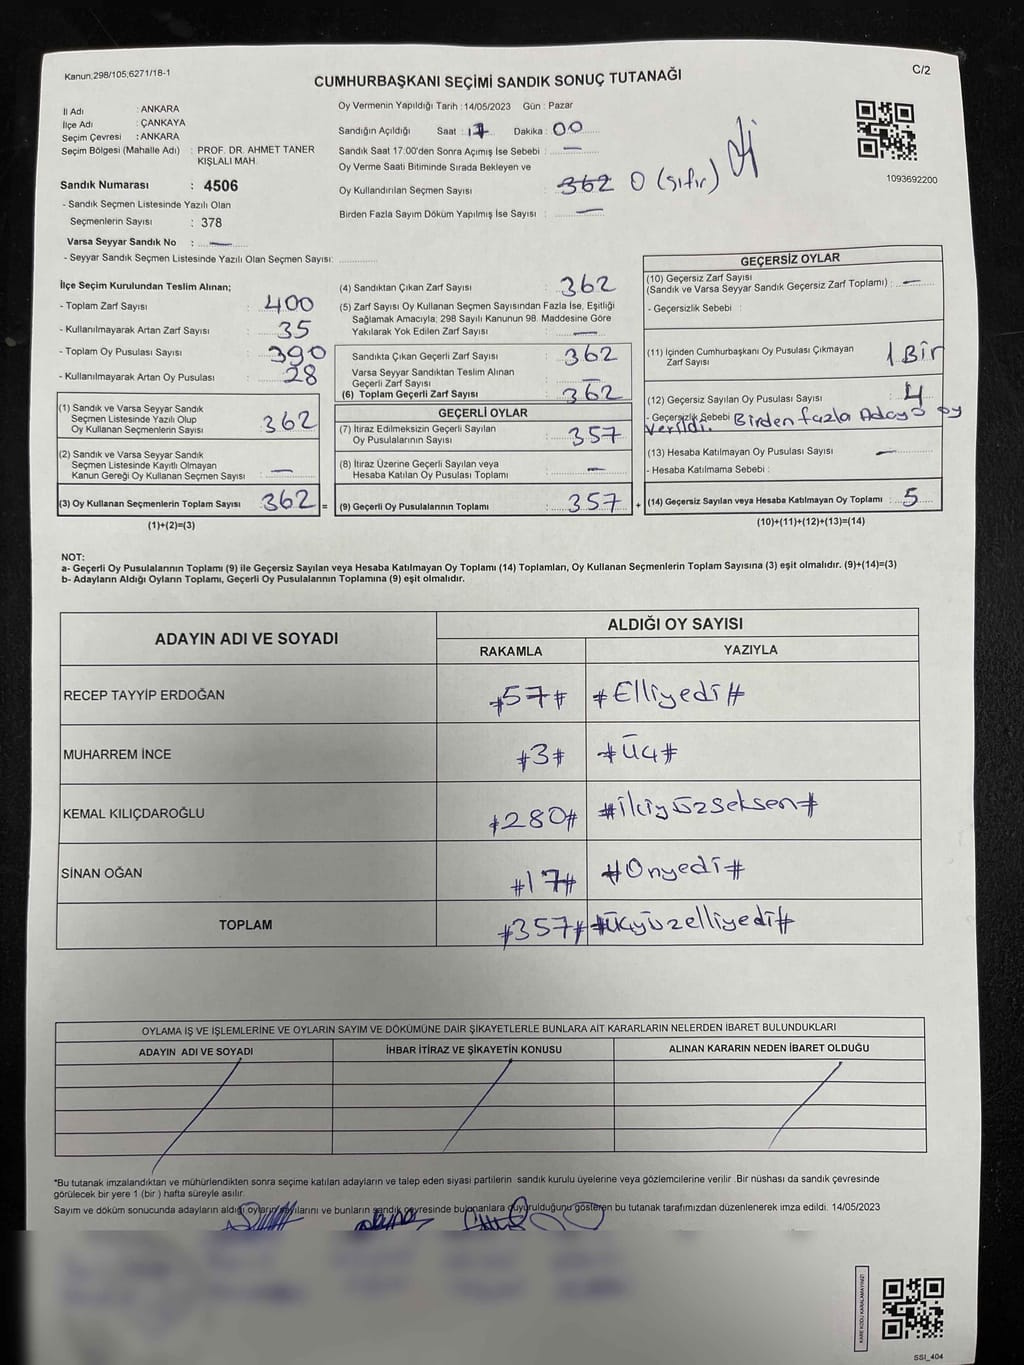 Kanun:298/105,6271/18-1
C/2
CUMHURBAŞKANI SEÇİMİ SANDIK SONUÇ TUTANAĞI
İl Adı : ANKARA
İlçe Adı : ÇANKAYA
Seçim Çevresi : ANKARA
Seçim Bölgesi (Mahalle Adı) : PROF. DR. AHMET TANER
KIŞLALI MAH.
Sandık Numarası : 4506
- Sandık Seçmen Listesinde Yazılı Olan
Seçmenlerin Sayısı : 378
Varsa Seyyar Sandık No : —
- Seyyar Sandık Seçmen Listesinde Yazılı Olan Seçmen Sayısı:
Oy Vermenin Yapıldığı Tarih :14/05/2023 Gün : Pazar
Sandığın Açıldığı Saat : 17 Dakika : 00
Sandık Saat 17:00'den Sonra Açımış İse Sebebi : —
Oy Verme Saati Bitiminde Sırada Bekleyen ve
Oy Kullandırılan Seçmen Sayısı : 362 0 (sıfır)
Birden Fazla Sayım Döküm Yapılmış İse Sayısı : —
1093692200
İlçe Seçim Kurulundan Teslim Alınan;
- Toplam Zarf Sayısı : 400
- Kullanılmayarak Artan Zarf Sayısı : 35
- Toplam Oy Pusulası Sayısı : 390
- Kullanılmayarak Artan Oy Pusulası : 28
(1) Sandık ve Varsa Seyyar Sandık
Seçmen Listesinde Yazılı Olup
Oy Kullanan Seçmenlerin Sayısı : 362
(2) Sandık ve Varsa Seyyar Sandık
Seçmen Listesinde Kayıtlı Olmayan
Kanun Gereği Oy Kullanan Seçmen Sayısı : —
(3) Oy Kullanan Seçmenlerin Toplam Sayısı : 362 =
(1)+(2)=(3)
(4) Sandıktan Çıkan Zarf Sayısı : 362
(5) Zarf Sayısı Oy Kullanan Seçmen Sayısından Fazla İse, Eşitliği
Sağlamak Amacıyla; 298 Sayılı Kanunun 98. Maddesine Göre
Yakılarak Yok Edilen Zarf Sayısı : —
Sandıkta Çıkan Geçerli Zarf Sayısı : 362
Varsa Seyyar Sandıktan Teslim Alınan
Geçerli Zarf Sayısı : —
(6) Toplam Geçerli Zarf Sayısı : 362
GEÇERLİ OYLAR
(7) İtiraz Edilmeksizin Geçerli Sayılan
Oy Pusulalarının Sayısı : 357
(8) İtiraz Üzerine Geçerli Sayılan veya
Hesaba Katılan Oy Pusulası Toplamı : —
(9) Geçerli Oy Pusulalarının Toplamı : 357 +
GEÇERSİZ OYLAR
(10) Geçersiz Zarf Sayısı
(Sandık ve Varsa Seyyar Sandık Geçersiz Zarf Toplamı) : —
- Geçersizlik Sebebi :
(11) İçinden Cumhurbaşkanı Oy Pusulası Çıkmayan
Zarf Sayısı 1 Bir
(12) Geçersiz Sayılan Oy Pusulası Sayısı : 4
- Geçersizlik Sebebi Birden fazla Adaya oy
verildi.
(13) Hesaba Katılmayan Oy Pusulası Sayısı : —
- Hesaba Katılmama Sebebi :
(14) Geçersiz Sayılan veya Hesaba Katılmayan Oy Toplamı : 5
(10)+(11)+(12)+(13)=(14)
NOT:
a- Geçerli Oy Pusulalarının Toplamı (9) ile Geçersiz Sayılan veya Hesaba Katılmayan Oy Toplamı (14) Toplamları, Oy Kullanan Seçmenlerin Toplam Sayısına (3) eşit olmalıdır. (9)+(14)=(3)
b- Adayların Aldığı Oyların Toplamı, Geçerli Oy Pusulalarının Toplamına (9) eşit olmalıdır.
ADAYIN ADI VE SOYADI
ALDIĞI OY SAYISI
RAKAMLA YAZIYLA
RECEP TAYYİP ERDOĞAN #57# #Elliyedi#
MUHARREM İNCE #3# #Üç#
KEMAL KILIÇDAROĞLU #280# #İkiyüzseksen#
SİNAN OĞAN #17# #Onyedi#
TOPLAM #357# #Üçyüzelliyedi#
OYLAMA İŞ VE İŞLEMLERİNE VE OYLARIN SAYIM VE DÖKÜMÜNE DAİR ŞİKAYETLERLE BUNLARA AİT KARARLARIN NELERDEN İBARET BULUNDUKLARI
ADAYIN ADI VE SOYADI İHBAR İTİRAZ VE ŞİKAYETİN KONUSU ALINAN KARARIN NEDEN İBARET OLDUĞU
*Bu tutanak imzalandıktan ve mühürlendikten sonra seçime katılan adayların ve talep eden siyasi partilerin sandık kurulu üyelerine veya gözlemcilerine verilir .Bir nüshası da sandık çevresinde
görülecek bir yere 1 (bir ) hafta süreyle asılır.
Sayım ve döküm sonucunda adayların aldığı oyların sayılarını ve bunların sandık çevresinde bulunanlara duyurulduğunu gösteren bu tutanak tarafımızdan düzenlenerek imza edildi. 14/05/2023
KARE KODU KARALAMAYINIZ!
SSI_404